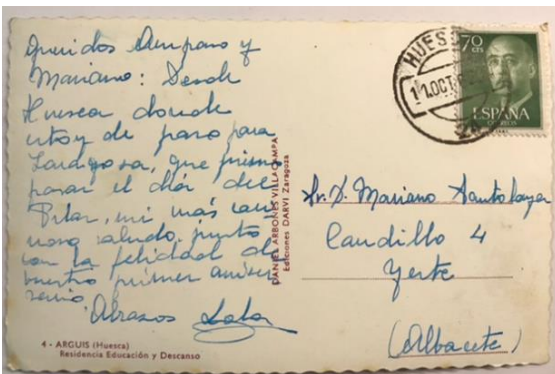 Queridos Amparo y
Mariano: Desde
Huesca donde
estoy de paso para
Zaragoza, que pienso
pasar el día del
Pilar, mi más cari
ñoso saludo, junto
con la felicidad de
vuestro primer aniver
sario.
Abrazos
4 - ARGUIS (Huesca)
Residencia Educación y Descanso
DANIEL ARBONES VILLACAMPA
Ediciones DARVI Zaragoza
HUESCA
11.OCT.
70
CTS
ESPAÑA
CORREOS
Sr. D. Mariano Santolaya
Caudillo 4
Yeste
(Albacete)